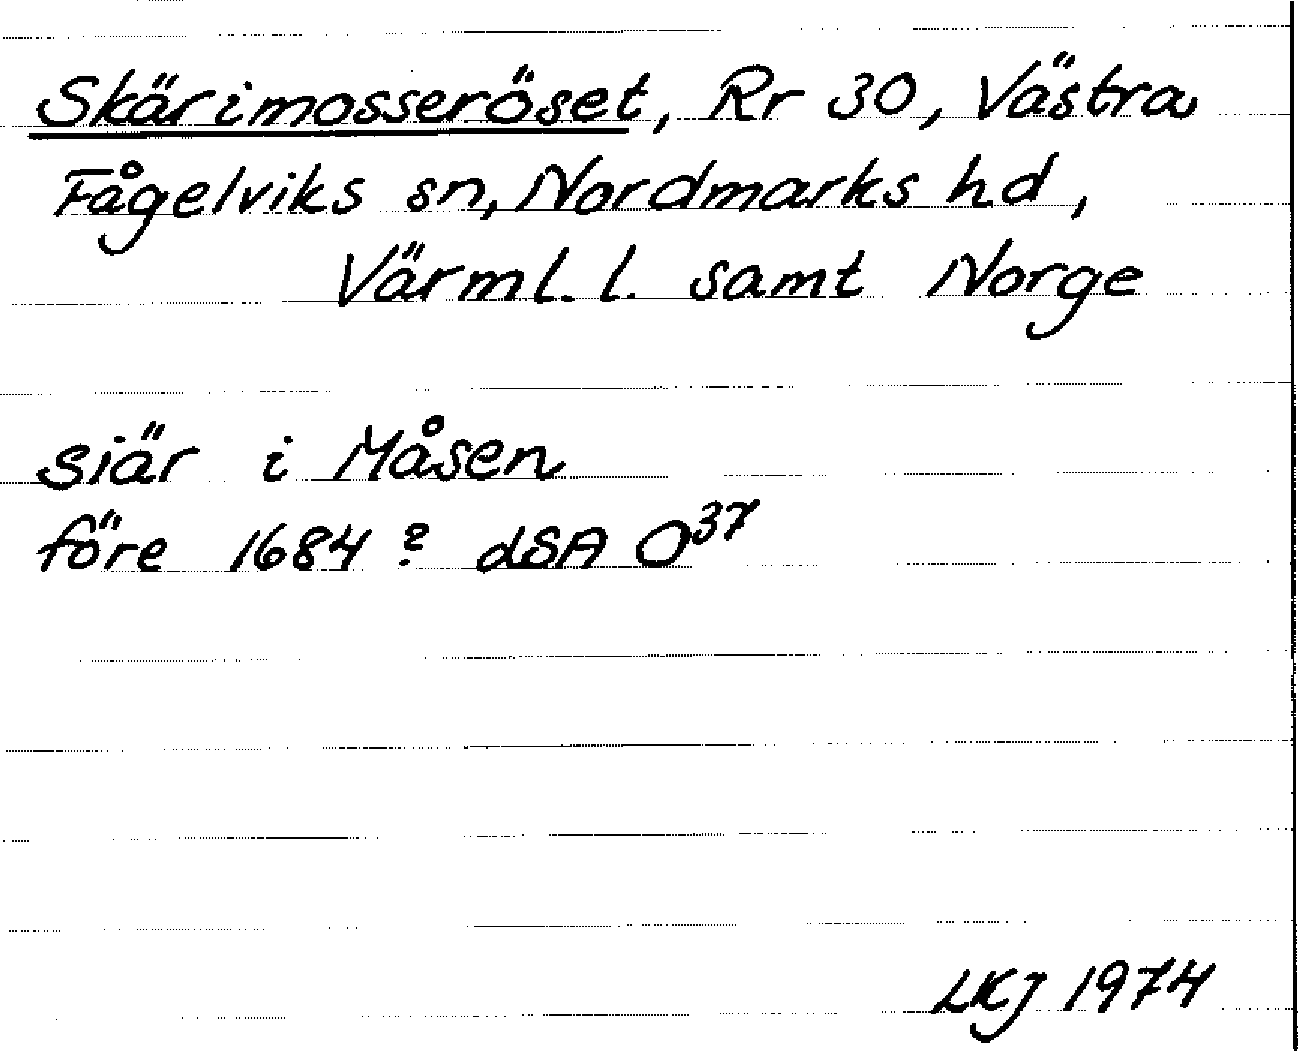 Skärimosseröset, Rr 30, Västra
Fågelviks sn, Nordmarks hd,
Värml. l. samt Norge
siär i Måsen
före 1684? dSA O³⁷
LKJ 1974